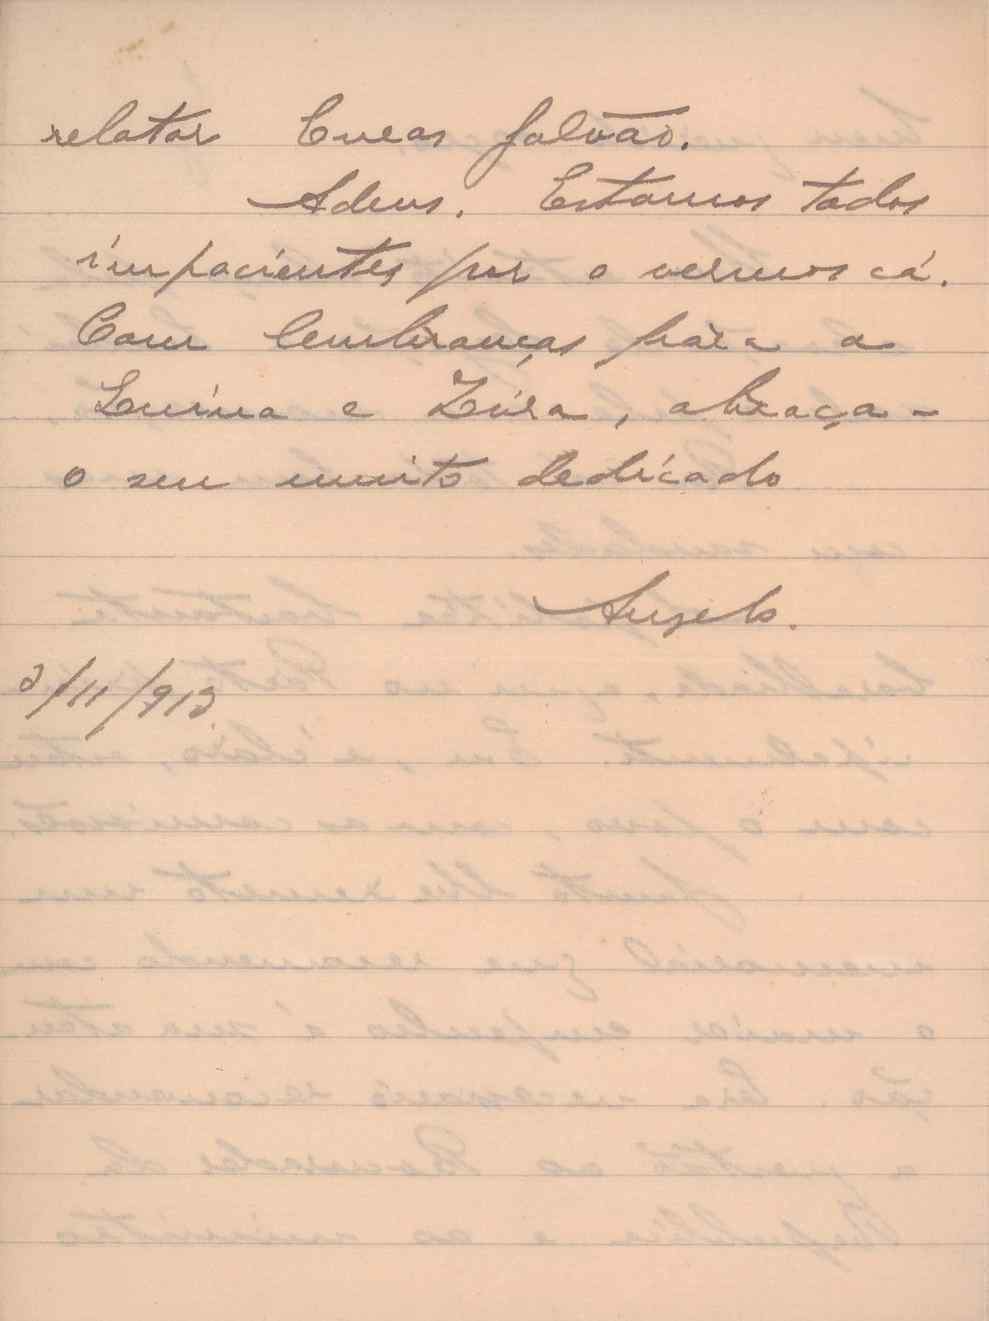 relator Eneas Galvão.
Adeus. Estamos todos
impacientes por o vermos cá.
Com lembranças para a
Leuina e Zéira, abraça-
o seu muito dedicado
Angelo.
2/11/913